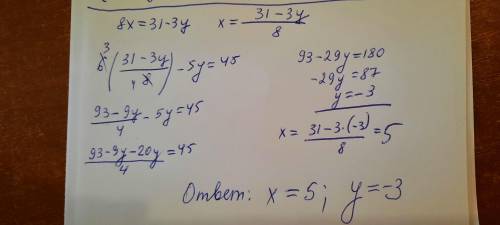 8x=31-3y x=(31-3y)/8
6̸ 3 ((31-3y)/(4 8̸)) -5y=45
(93-9y)/4 -5y=45
(93-9y-20y)/4 =45
93-29y=180
-29y=87
y=-3
x= (31-3·(-3))/8 =5
Ответ: x=5; y=-3